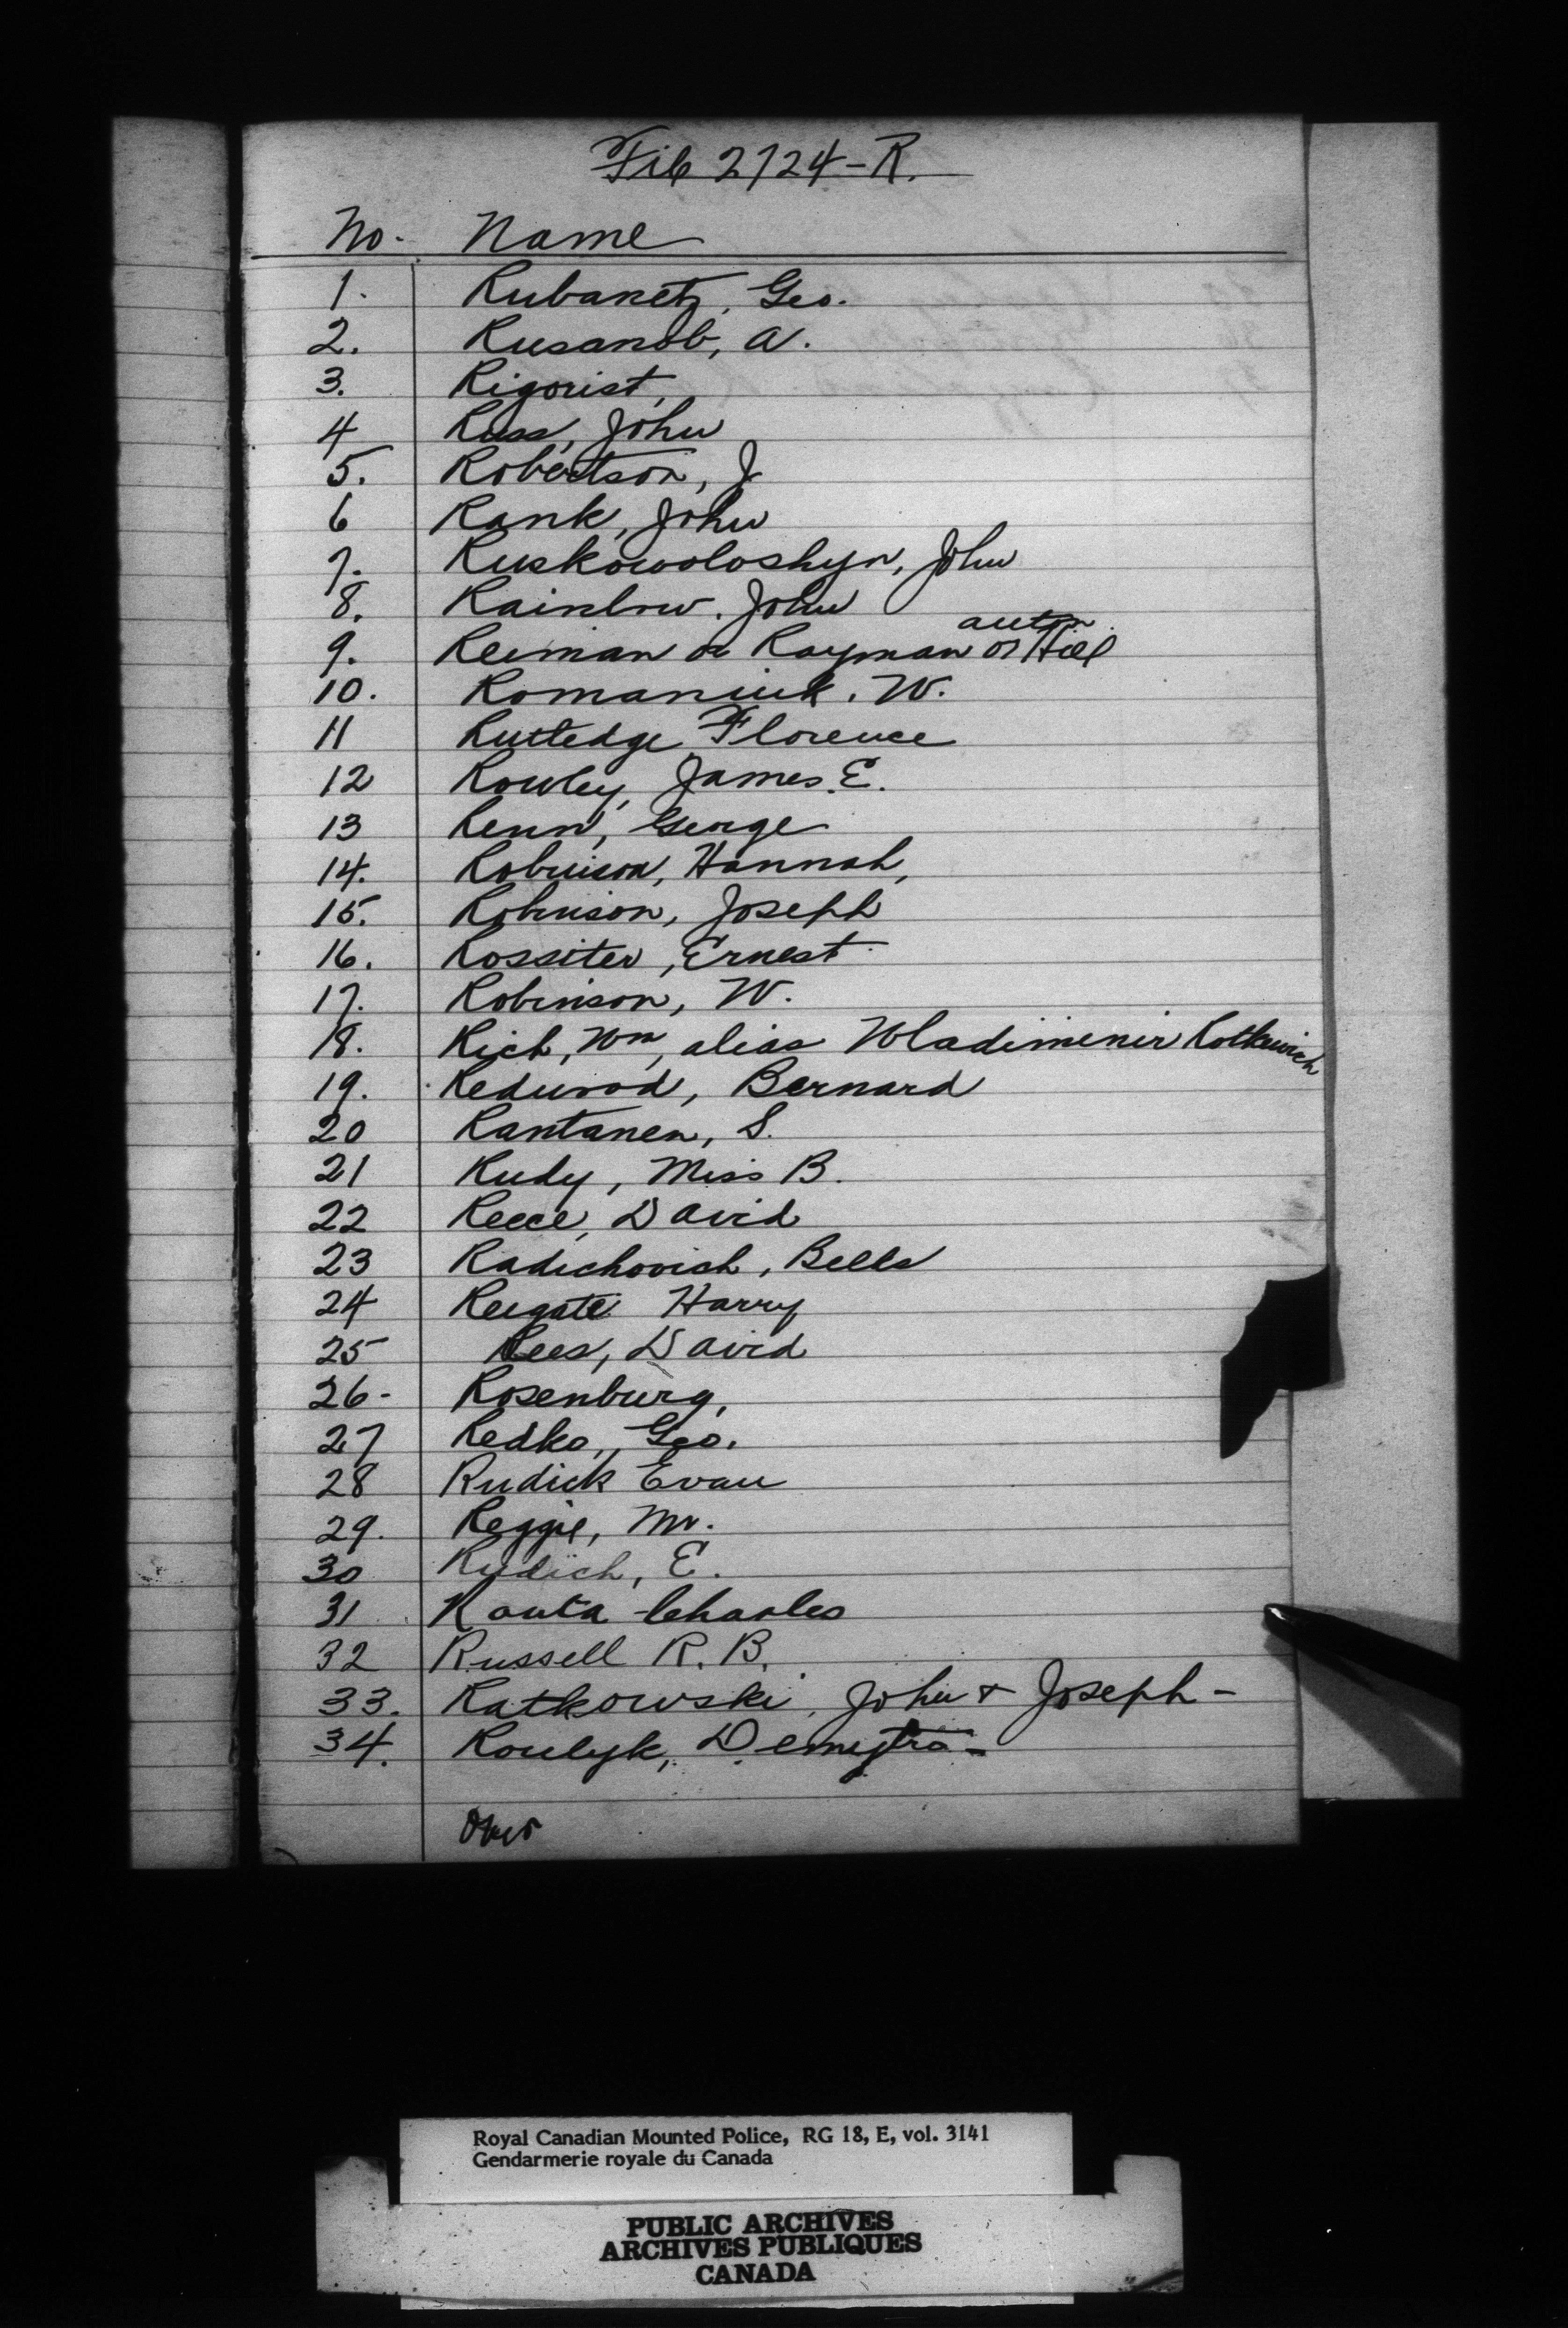 File 2724-R.
No. Name
1. Rubanetz, Geo.
2. Rusanob, A.
3. Rigorist,
4 Russ, John
5. Robertson, J
6 Rank, John
7. Ruskowoloshyn, John
8. Rainbow. John
9. Reiman or Rayman or Hill
Anton
10. Romaniuk, W.
11 Rutledge, Florence
12 Rowley, James. E.
13 Renn, George
14. Robinson, Hannah,
15. Robinson, Joseph
16. Rossiter, Ernest
17. Robinson, W.
18. Rich, Wm, alias Wladimenir Rotkewich
19. Redwood, Bernard
20 Rantanen, S.
21 Rudy, Miss B.
22 Reece, David
23 Radichovich, Bella
24 Reigate Harry
25 Rees, David
26- Rosenburg,
27 Redko, Geo.
28 Rudick Evan
29. Reggie, Mr.
30 Rudich, E.
31 Rauta Charles
32 Russell R. B.
33. Ratkowski, John & Joseph -
34. Roulyk, Demytro -
Over
Royal Canadian Mounted Police, RG 18, E, vol. 3141
Gendarmerie royale du Canada
PUBLIC ARCHIVES
ARCHIVES PUBLIQUES
CANADA